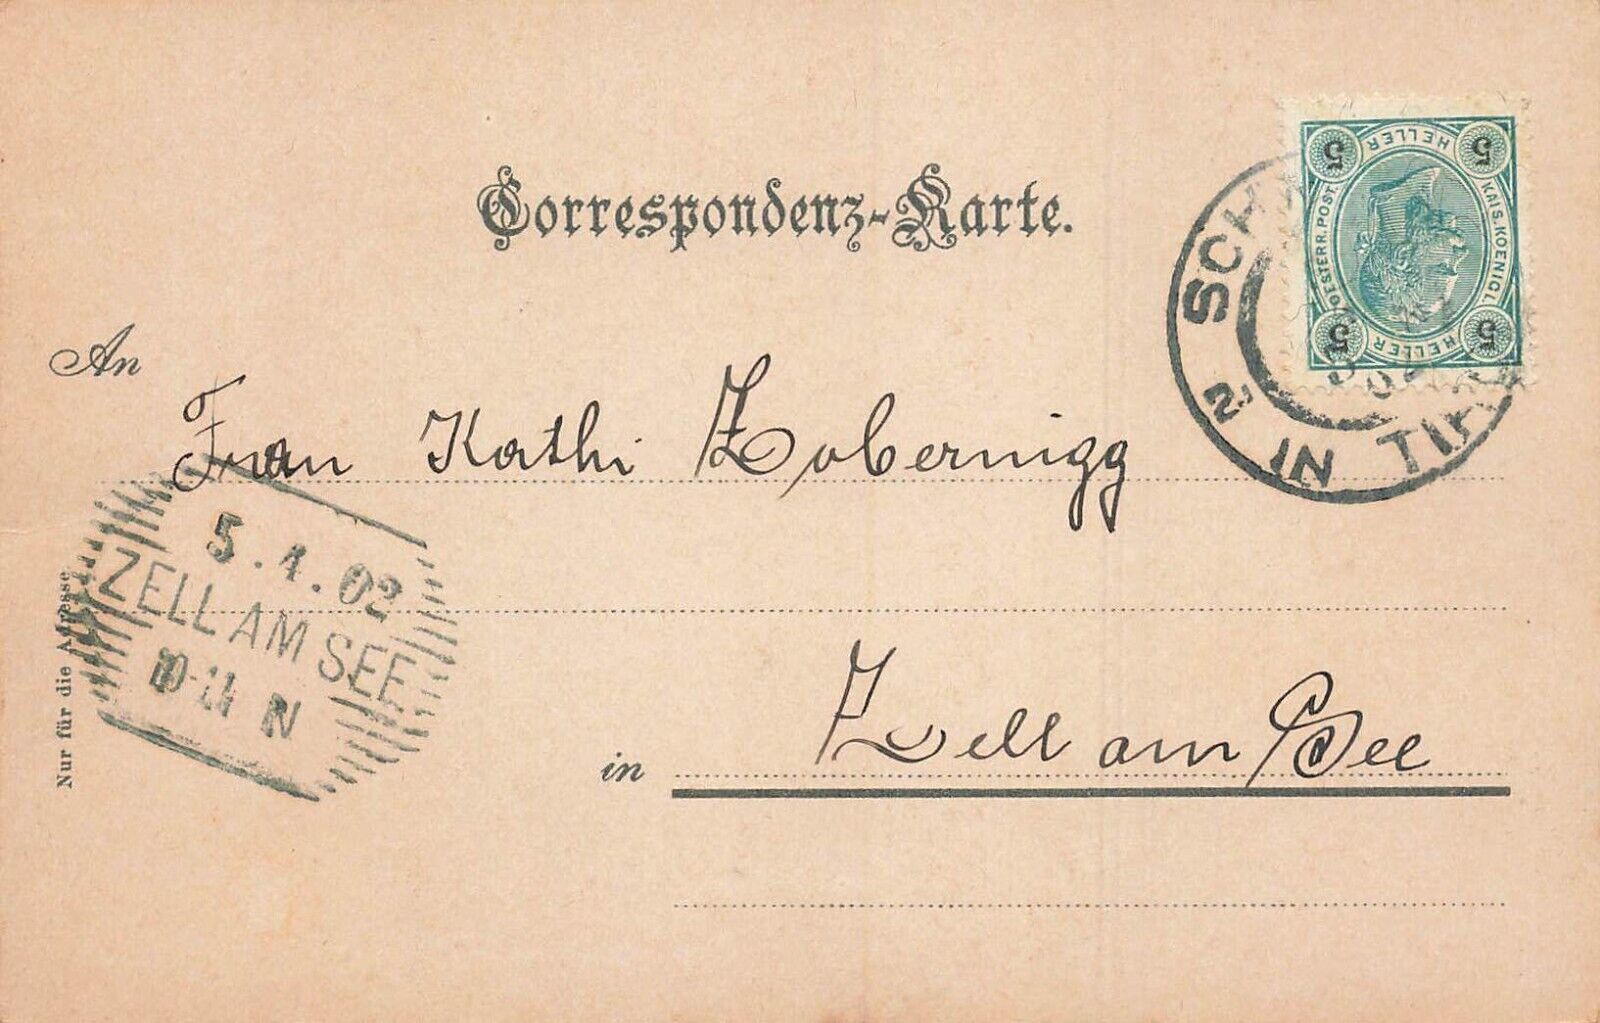 Correspondenz-Karte.
HELLER
5 5
OESTERR. POST.
KAIS. KOENIGL.
5 5
HELLER
SCH
2 IN TIR
02
An
Frau Kathi Zobernigg
5.1.02
ZELL AM SEE
10-11 N
Nur für die Adresse
in Zell am See